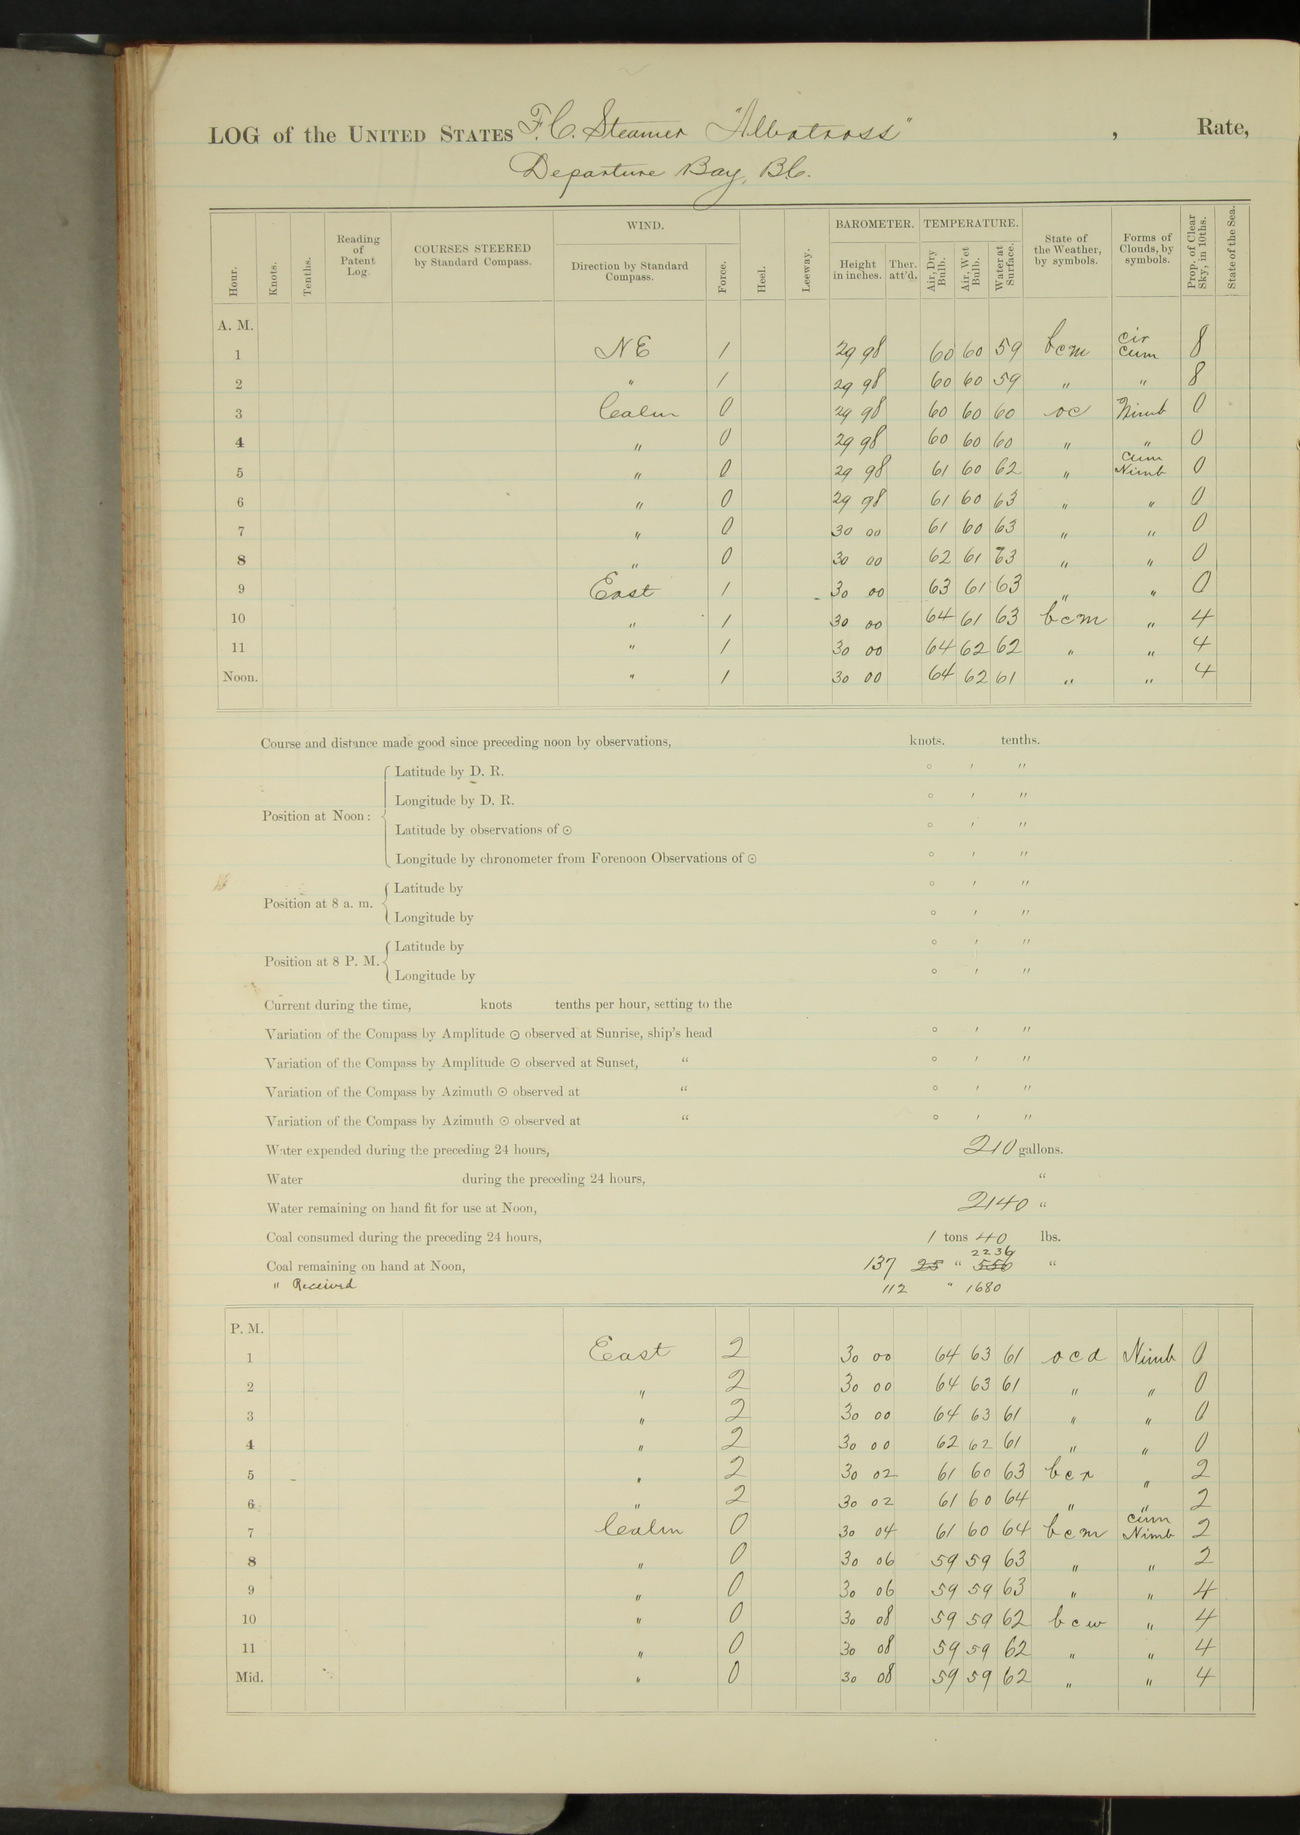 LOG of the UNITED STATES F.C. Steamer "Albatross" , Rate,
Departure Bay, B.C.
Hour. Knots. Tenths. Reading of Patent Log. COURSES STEERED by Standard Compass. WIND. Direction by Standard Compass. Force. Heel. Leeway. BAROMETER. Height in inches. Ther. att'd. TEMPERATURE. Air, Dry Bulb. Air, Wet Bulb. Water at Surface. State of the Weather, by symbols. Forms of Clouds, by symbols. Prop. of Clear Sky, in 10ths. State of the Sea.
A. M.
1 NE 1 29 98 60 60 59 bcm Cir Cum 8
2 " 1 29 98 60 60 59 " " 8
3 Calm 0 29 98 60 60 60 oc Nimb 0
4 " 0 29 98 60 60 60 " " 0
5 " 0 29 98 61 60 62 " Cum Nimb 0
6 " 0 29 98 61 60 63 " " 0
7 " 0 30 00 61 60 63 " " 0
8 " 0 30 00 62 61 63 " " 0
9 East 1 30 00 63 61 63 " " 0
10 " 1 30 00 64 61 63 bcm " 4
11 " 1 30 00 64 62 62 " " 4
Noon. " 1 30 00 64 62 61 " " 4
Course and distance made good since preceding noon by observations, knots. tenths.
Position at Noon: Latitude by D. R. ° ′ ″
Longitude by D. R. ° ′ ″
Latitude by observations of ⊙ ° ′ ″
Longitude by chronometer from Forenoon Observations of ⊙ ° ′ ″
Position at 8 a. m. Latitude by ° ′ ″
Longitude by ° ′ ″
Position at 8 P. M. Latitude by ° ′ ″
Longitude by ° ′ ″
Current during the time, knots tenths per hour, setting to the
Variation of the Compass by Amplitude ⊙ observed at Sunrise, ship's head ° ′ ″
Variation of the Compass by Amplitude ⊙ observed at Sunset, " ° ′ ″
Variation of the Compass by Azimuth ⊙ observed at " ° ′ ″
Variation of the Compass by Azimuth ⊙ observed at " ° ′ ″
Water expended during the preceding 24 hours, 210 gallons.
Water during the preceding 24 hours, "
Water remaining on hand fit for use at Noon, 2140 "
Coal consumed during the preceding 24 hours, 1 tons 40 lbs.
2236
Coal remaining on hand at Noon, 137 25 " 556 "
" Received 112 " 1680
P. M.
1 East 2 30 00 64 63 61 ocd Nimb 0
2 " 2 30 00 64 63 61 " " 0
3 " 2 30 00 64 63 61 " " 0
4 " 2 30 00 62 62 61 " " 0
5 " 2 30 02 61 60 63 bcr " 2
6 " 2 30 02 61 60 64 " " 2
7 Calm 0 30 04 61 60 64 bcm Cum Nimb 2
8 " 0 30 06 59 59 63 " " 2
9 " 0 30 06 59 59 63 " " 4
10 " 0 30 08 59 59 62 bcw " 4
11 " 0 30 08 59 59 62 " " 4
Mid. " 0 30 08 59 59 62 " " 4